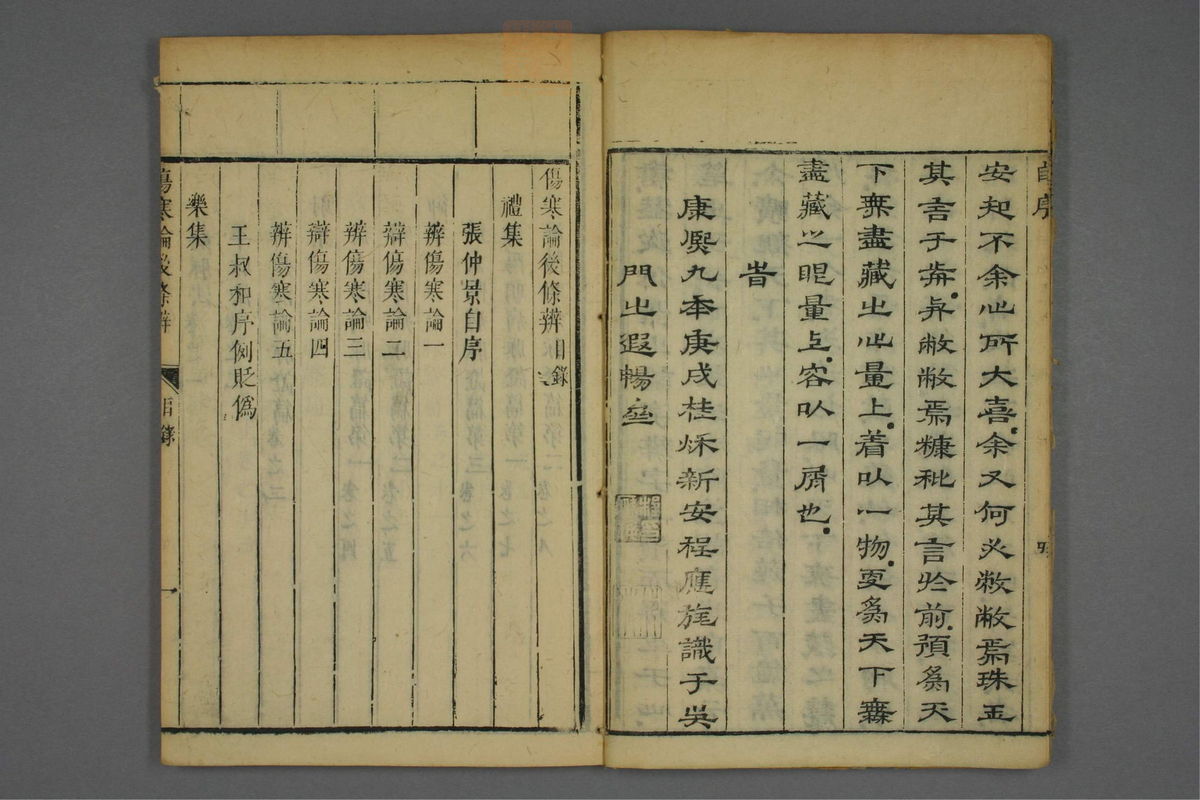 自序
安知不余心所大喜余又何必敝敝焉珠玉
其言于歬並敝敝焉糠秕其言於前預爲天
下無盡藏出此量上着以一物更爲天下無
盡藏之眼量上容以一屑也
旹
康熙九年庚戌桂秌新安程應旄識于吳
門之遐暢堂
傷寒論後條辨目錄
禮集
張仲景自序
辨傷寒論一
辯傷寒論二
辨傷寒論三
辯傷寒論四
辨傷寒論五
王叔和序例貶僞
樂集
傷寒論後條辨 目錄 一